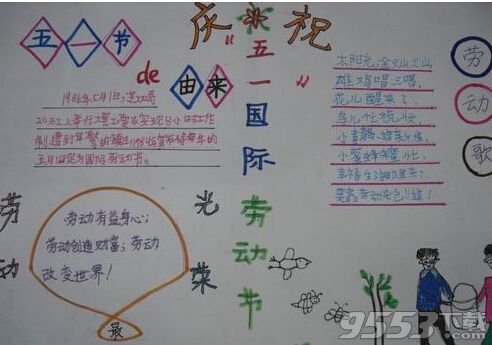 五一节
de
由来
庆祝
"五一国际劳动节"
1986年5月1日,芝加哥
20万工人举行大罢工要求实现8小时工作
五月1日定为国际劳动节。
劳动
光荣
劳动有益身心;
劳动创造财富;劳动
改变世界!
最
劳动歌
太阳光,金灿灿,
雄鸡唱三唱,
花儿醒来了,
鸟儿忙梳妆,
小喜鹊造新房,
小蜜蜂采蜜忙,
幸福生活哪里来?
要靠劳动来创造!
9553下载
.com